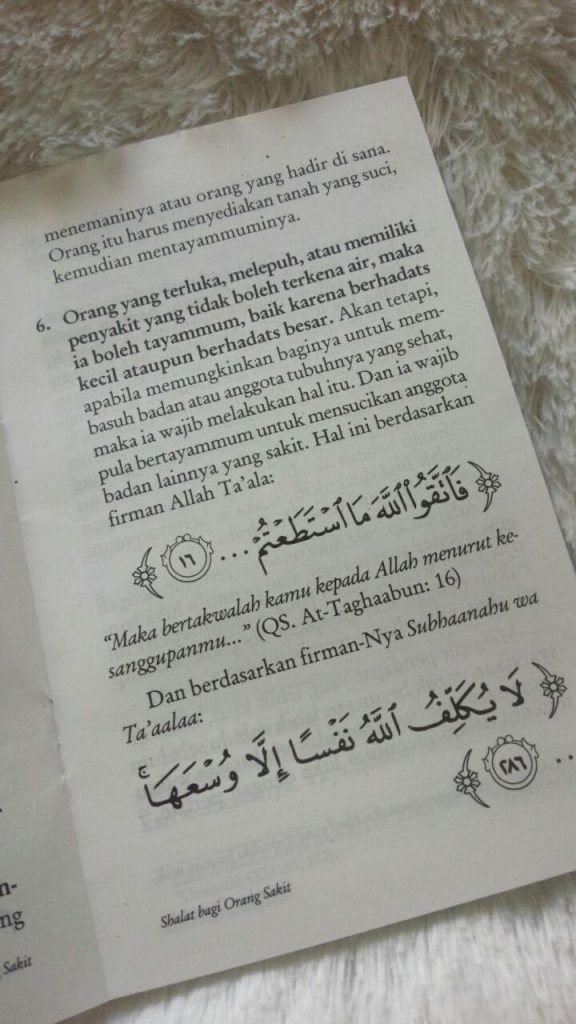 menemaninya atau orang yang hadir di sana.
Orang itu harus menyediakan tanah yang suci,
kemudian mentayammuminya.
6. Orang yang terluka, melepuh, atau memiliki
penyakit yang tidak boleh terkena air, maka
ia boleh tayammum, baik karena berhadats
kecil ataupun berhadats besar. Akan tetapi,
apabila memungkinkan baginya untuk mem-
basuh badan atau anggota tubuhnya yang sehat,
maka ia wajib melakukan hal itu. Dan ia wajib
pula bertayammum untuk mensucikan anggota
badan lainnya yang sakit. Hal ini berdasarkan
firman Allah Ta'ala:
فَٱتَّقُوا۟ ٱللَّهَ مَا ٱسْتَطَعْتُمْ ... ١٦
“Maka bertakwalah kamu kepada Allah menurut ke-
sanggupanmu...” (QS. At-Taghaabun: 16)
Dan berdasarkan firman-Nya Subhaanahu wa
Ta'aalaa:
لَا يُكَلِّفُ ٱللَّهُ نَفْسًا إِلَّا وُسْعَهَا ۚ
... ٢٨٦
Shalat bagi Orang Sakit
n-
ng
Sakit